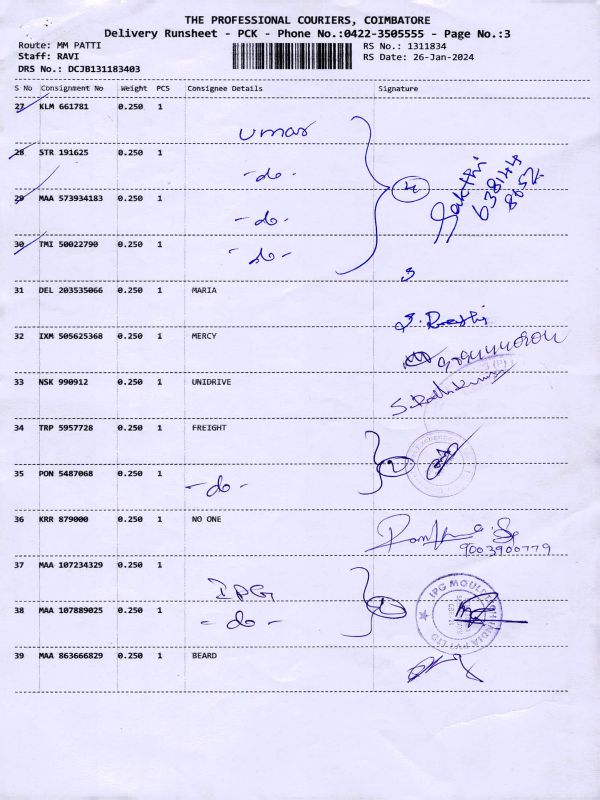 THE PROFESSIONAL COURIERS, COIMBATORE
Delivery Runsheet - PCK - Phone No.:0422-3505555 - Page No.:3
Route: MM PATTI RS No.: 1311834
Staff: RAVI RS Date: 26-Jan-2024
DRS No.: DCJB131183403
S No Consignment No Weight PCS Consignee Details Signature
27 KLM 661781 0.250 1 umar
28 STR 191625 0.250 1 -do-
29 MAA 573934183 0.250 1 -do-
30 TMI 50022790 0.250 1 -do-
4
Sakthi
638144
31 DEL 203535066 0.250 1 MARIA
32 IXM 505625368 0.250 1 MERCY
33 NSK 990912 0.250 1 UNIDRIVE
34 TRP 5957728 0.250 1 FREIGHT
35 PON 5487068 0.250 1 -do- 2
36 KRR 879000 0.250 1 NO ONE
9003900779
37 MAA 107234329 0.250 1 IPG
38 MAA 107889025 0.250 1 -do-
IPG MOULD INDIA PVT LTD
39 MAA 863666829 0.250 1 BEARD